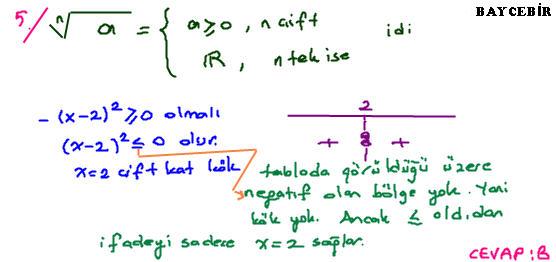 BAYCEBİR
5/ ⁿ√a = { a ≥ 0 , n çift
ℝ , n tek ise
idi
- (x-2)² ≥ 0 olmalı
(x-2)² ≤ 0 olur.
x=2 çift kat kök
2
+ +
tabloda görüldüğü üzere
negatif olan bölge yok. Yani
kök yok. Ancak ≤ old.dan
ifadeyi sadece x=2 sağlar.
CEVAP:B